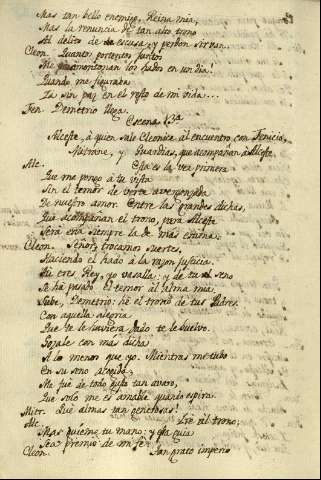 Mas tan bello enemigo, Reina mia,
Mas la renuncia de tan alto trono
Al delito de escusa, y perdon sirvan.
Cleon. Quantos portentos juntos
Me amontonan los hados en un dia!
Quando me figuraba
Ya sin paz en el resto de mi vida...
Fen. Demetrio llega.
Escena 13ª
Alceste, á quien sale Cleonice al encuentro con Fenicio,
Mitrane, y Guardias, que acompañan á Alceste.
Alc. Esta es la vez primera
Que me pongo á tu vista
Sin el temor de verte avergonzada
De nuestro amor. Entre las grandes dichas,
Que acompañan el trono, para Alceste
Será esta siempre la de más estima.
Cleon. Señor, trocamos suertes,
Haciendo el hado á la razon justicia.
Tú eres Rey, yo vasalla: y de tu seno
Se ha pasado el temor al alma mia.
Sube, Demetrio: hé el trono de tus Padres.
Con aquella alegria
Que te le hubiera dado te le buelvo.
Gozale con más dichas
A lo menor que yo. Mientras me tubo
En su seno acogida,
Me fué de todo gusto tan avaro,
Que solo me es amable quando espira.
Mitr. Qué almas tan generosas!
Alc. Iré al trono;
Mas quiero tu mano: y esta guia
Sea premio de mi fé.
Cleon. Tan grato imperio